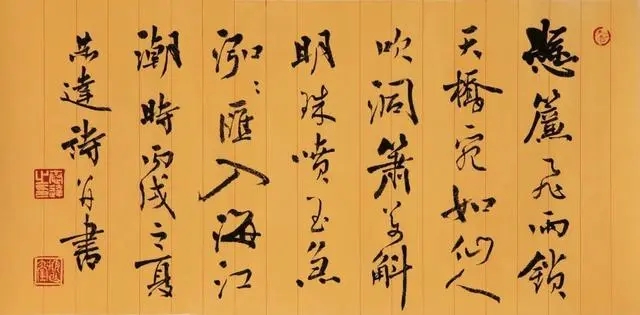 懸簾飛雨鎖
天橋宛如仙人
吹洞簫萬斛
明珠噴玉急
泓〻匯入海江
潮時丙戌之夏
志達詩并書